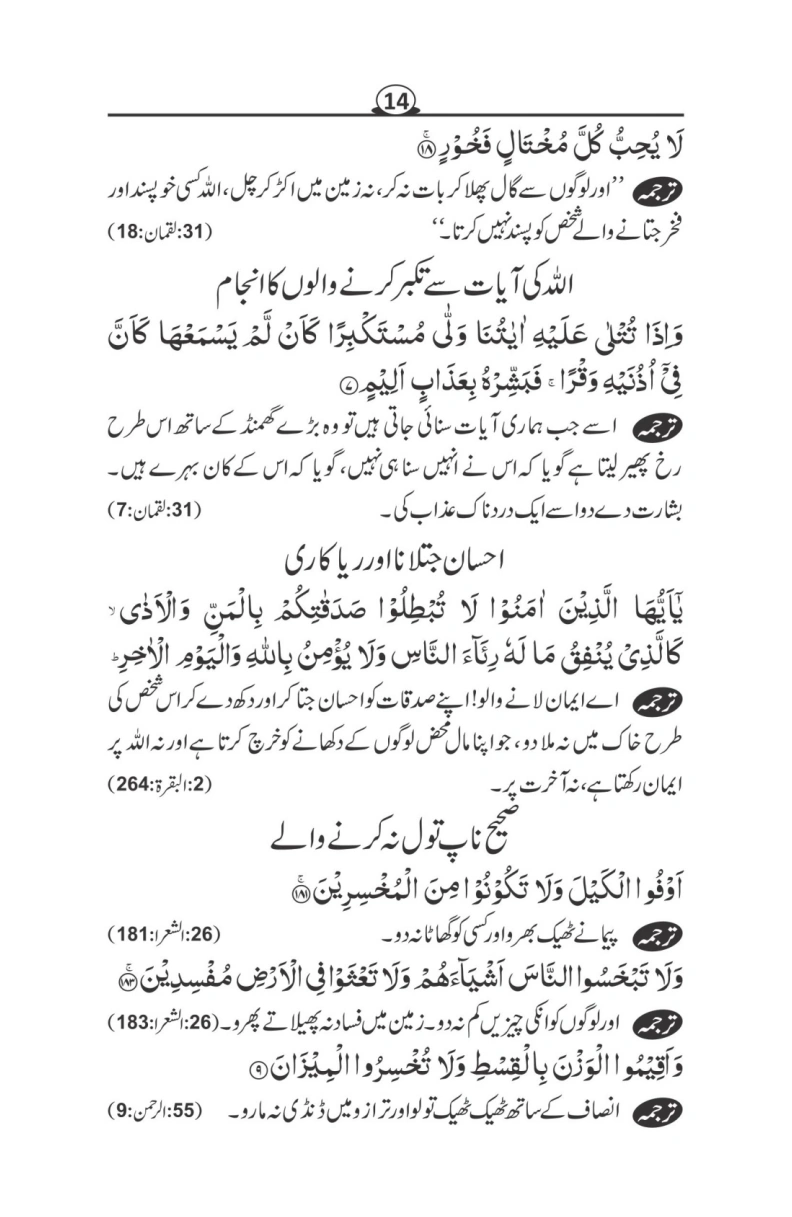 14
لَا يُحِبُّ كُلَّ مُخْتَالٍ فَخُوْرٍ ۚ۝۱۸
ترجمہ ’’اور لوگوں سے گال پھلا کر بات نہ کر، نہ زمین میں اکڑ کر چل، اللہ کسی خود پسند اور
فخر جتانے والے شخص کو پسند نہیں کرتا۔‘‘ (31:لقمان:18)
اللہ کی آیات سے تکبر کرنے والوں کا انجام
وَاِذَا تُتْلٰى عَلَيْهِ اٰيٰتُنَا وَلّٰى مُسْتَكْبِرًا كَاَنْ لَّمْ يَسْمَعْهَا كَاَنَّ
فِيْٓ اُذُنَيْهِ وَقْرًا ۚ فَبَشِّرْهُ بِعَذَابٍ اَلِيْمٍ ۝۷
ترجمہ اسے جب ہماری آیات سنائی جاتی ہیں تو وہ بڑے گھمنڈ کے ساتھ اس طرح
رخ پھیر لیتا ہے گویا کہ اس نے انہیں سنا ہی نہیں، گویا کہ اس کے کان بہرے ہیں۔
بشارت دے دو اسے ایک دردناک عذاب کی۔ (31:لقمان:7)
احسان جتلانا اور ریاکاری
يٰٓاَيُّهَا الَّذِيْنَ اٰمَنُوْا لَا تُبْطِلُوْا صَدَقٰتِكُمْ بِالْمَنِّ وَالْاَذٰى ۙ
كَالَّذِيْ يُنْفِقُ مَا لَهٗ رِئَآءَ النَّاسِ وَلَا يُؤْمِنُ بِاللّٰهِ وَالْيَوْمِ الْاٰخِرِ ؕ
ترجمہ اے ایمان لانے والو! اپنے صدقات کو احسان جتا کر اور دکھ دے کر اس شخص کی
طرح خاک میں نہ ملا دو، جو اپنا مال محض لوگوں کے دکھانے کو خرچ کرتا ہے اور نہ اللہ پر
ایمان رکھتا ہے، نہ آخرت پر۔ (2:البقرۃ:264)
صحیح ناپ تول نہ کرنے والے
اَوْفُوا الْكَيْلَ وَلَا تَكُوْنُوْا مِنَ الْمُخْسِرِيْنَ ۚ۝۱۸۱
ترجمہ پیمانے ٹھیک بھرو اور کسی کو گھاٹا نہ دو۔ (26:الشعرا:181)
وَلَا تَبْخَسُوا النَّاسَ اَشْيَآءَهُمْ وَلَا تَعْثَوْا فِي الْاَرْضِ مُفْسِدِيْنَ ۚ۝۱۸۳
ترجمہ اور لوگوں کو انکی چیزیں کم نہ دو۔ زمین میں فساد نہ پھیلاتے پھرو۔ (26:الشعرا:183)
وَاَقِيْمُوا الْوَزْنَ بِالْقِسْطِ وَلَا تُخْسِرُوا الْمِيْزَانَ ۝۹
ترجمہ انصاف کے ساتھ ٹھیک ٹھیک تولو اور ترازو میں ڈنڈی نہ مارو۔ (55:الرحمن:9)